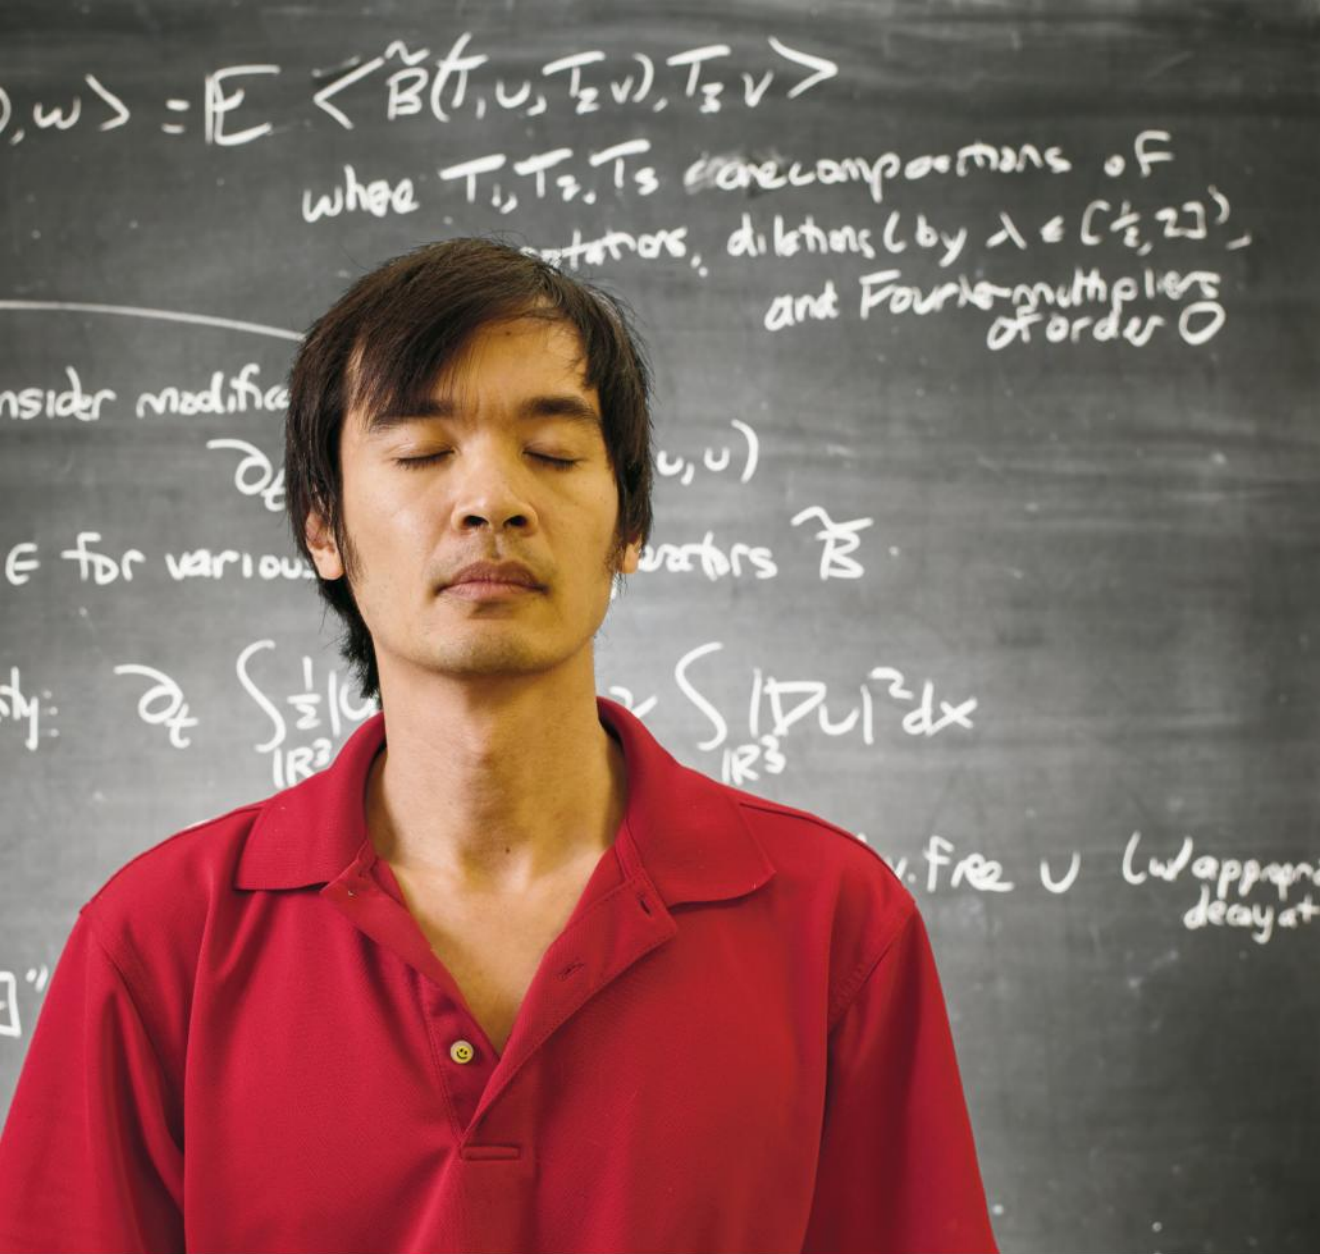 ),w> = 𝔼 <B̃(T₁u,T₂v),T₃v>
where T₁,T₂,T₃ are compositions of
otations, dilations (by λ ∈ [½,2]),
and Fourier multipliers
of order 0
nsider modifica
∂t u,u)
E for various erators B̃.
ity: ∂t ∫ℝ³ ½|u ∫ℝ³ |∇u|²dx
v. free u (w/ appropri
decay at